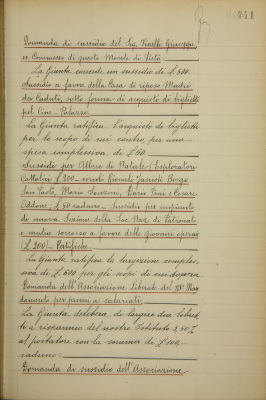 Domanda di sussidio del Sig. Tinelli Giuseppe
ex Commesso di questo Monte di Pietà
La Giunta concede un sussidio di £ 500.
Sussidio a favore della Casa di riposo Madri
dei Caduti, sotto forma di acquisto di biglietti
pel Cine-Palazzo.
La Giunta ratifica l'acquisto di biglietti
per lo scopo di cui contro per una
spesa complessiva di
Sussidio per Albero di Natale: Esploratori
Cattolici £ 200 - Rionale Fascisti Borgo
San Mario Sonzini, Dario Pini e Cesare
Oddone: £ 50 caduno. Sussidio per impianto
di nuova Sezione della Soc. Naz. di Patronato
e mutuo soccorso a favore delle giovani operaie
(£ 200) - Ratifiche.
La Giunta ratifica la largizione comples-
siva di £ 600 per gli scopi di cui sopra.
Domanda dell'Associazione Liberale del Man-
damento per premi a salariati.
La Giunta delibera di largire due libret-
ti a risparmio del nostro Istituto 2.50%
al portatore con la somma di £ 100,-
caduno.
Domanda di sussidio dell'Associazione